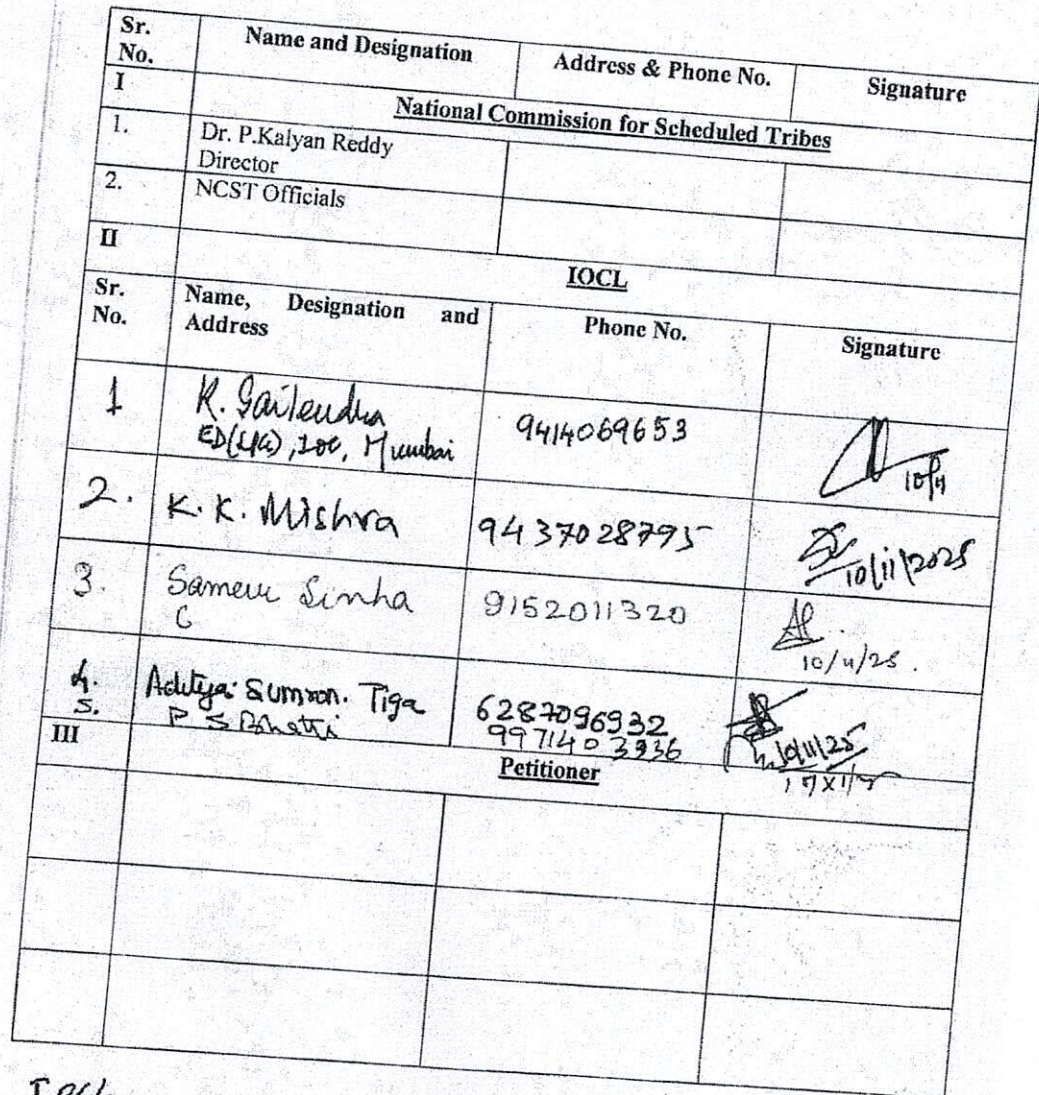 Sr. No. Name and Designation Address & Phone No. Signature
I National Commission for Scheduled Tribes
1. Dr. P.Kalyan Reddy
Director
2. NCST Officials
II IOCL
Sr. No. Name, Designation and Address Phone No. Signature
1 K. Sailendra 9414069653
Mumbai 10/11
2. K. K. Mishra 9437028795 10/11/2025
3. Sinha 9152011320
10/11/25.
4. Aditya Tiga 6287096932
5. P S 9971403936 10/11/25
III Petitioner